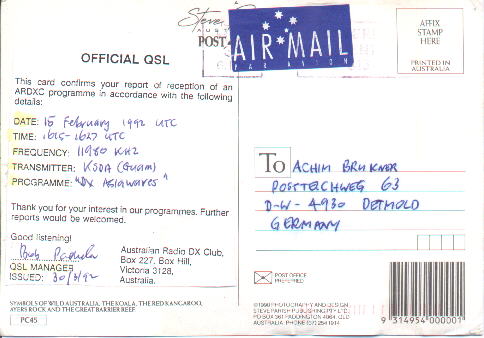 Steve
AUST
POST
AIR MAIL
PAR AVION
AFFIX
STAMP
HERE
PRINTED IN
AUSTRALIA
OFFICIAL QSL
This card confirms your report of reception of an
ARDXC programme in accordance with the following
details:
DATE: 15 February 1992 UTC
TIME: 1615-1627 UTC
FREQUENCY: 11980 KHZ
TRANSMITTER: KSDA (Guam)
PROGRAMME: "DX Asiawaves"
Thank you for your interest in our programmes. Further
reports would be welcomed.
Good listening!
Bob Padula
QSL MANAGER
ISSUED: 30/3/92
Australian Radio DX Club,
Box 227, Box Hill,
Victoria 3128,
Australia.
To
ACHIM BRUKNER
POSTTEICHWEG 63
D-W-4930 DETMOLD
GERMANY
POST OFFICE
PREFERRED
SYMBOLS OF WILD AUSTRALIA, THE KOALA, THE RED KANGAROO,
AYERS ROCK AND THE GREAT BARRIER REEF
PC45
©1990 PHOTOGRAPHY AND DESIGN
STEVE PARISH PUBLISHING PTY LTD
PO BOX 361 PADDINGTON 4064, QLD
AUSTRALIA PHONE (07) 254 1914
9 314954 000001